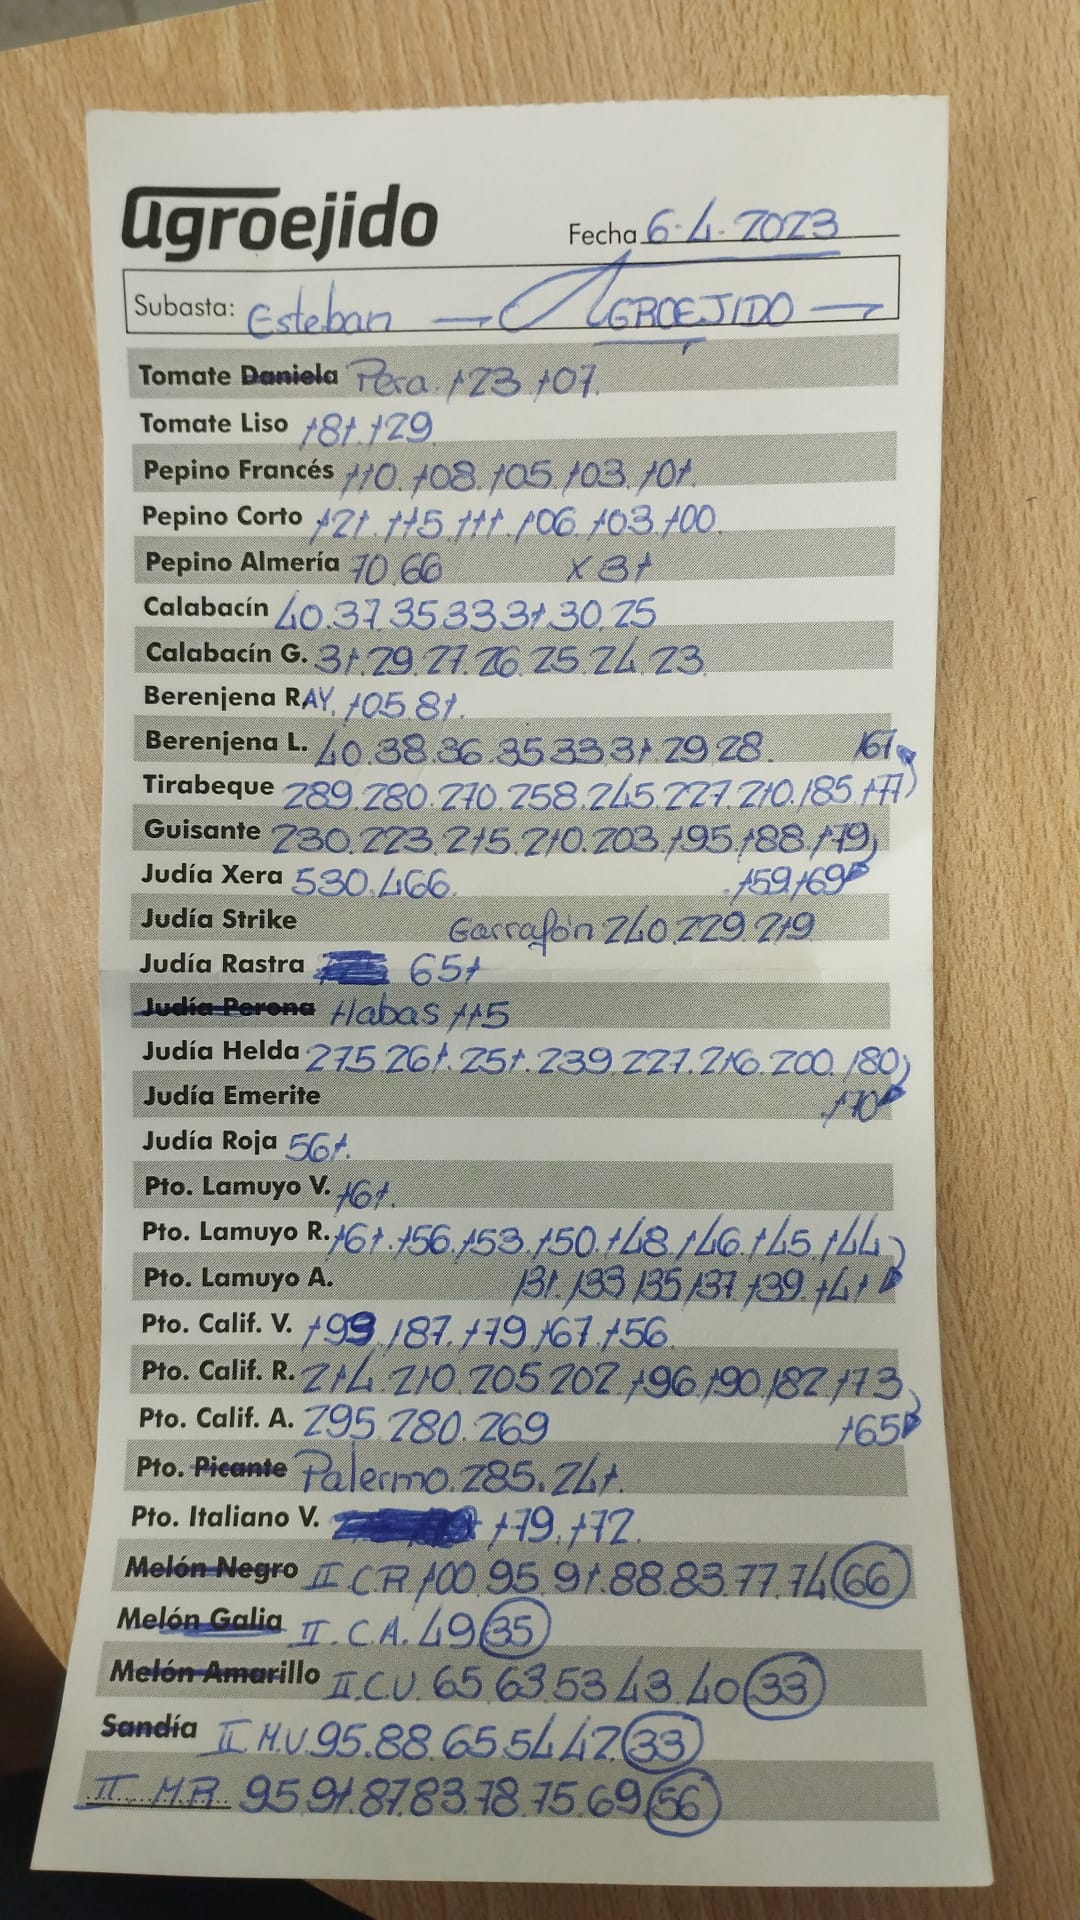 agroejido
Fecha 6-4-2023
Subasta: Esteban → AGROEJIDO →
Tomate Daniela Pera. 123.107.
Tomate Liso 181.129
Pepino Francés 110.108.105.103.101.
Pepino Corto 121.115.111.106.103.100.
Pepino Almería 70.66 x 31
Calabacín 40.37.35.33.31.30.25
Calabacín G. 31.29.27.26.25.24.23
Berenjena RAY. 105.81.
Berenjena L. 40.38.36.35.33.31.29.28. 167
Tirabeque 289.280.270.258.245.227.210.185.177
Guisante 230.223.215.210.203.195.188.179
Judía Xera 530.466. .159.169
Judía Strike Garrafón 240.229.219
Judía Rastra 651
Judía Perona Habas 115
Judía Helda 275.261.251.239.227.216.200.180
Judía Emerite .170
Judía Roja 561.
Pto. Lamuyo V. 161.
Pto. Lamuyo R. 161.156.153.150.148.146.145.144
Pto. Lamuyo A. 131.133.135.137.139.141
Pto. Calif. V. 199.187.179.167.156.
Pto. Calif. R. 214.210.205.202.196.190.182.173
Pto. Calif. A. 295.280.269 165
Pto. Picante Palermo.285.241.
Pto. Italiano V. 179.172.
Melón Negro II.C.R.100.95.91.88.83.77.74 66
Melón Galia II.C.A.49 35
Melón Amarillo II.C.V. 65.63.53.43.40 33
Sandía II.M.V.95.88.65.54.42 33
II.M.R. 95.91.87.83.78.75.69 56